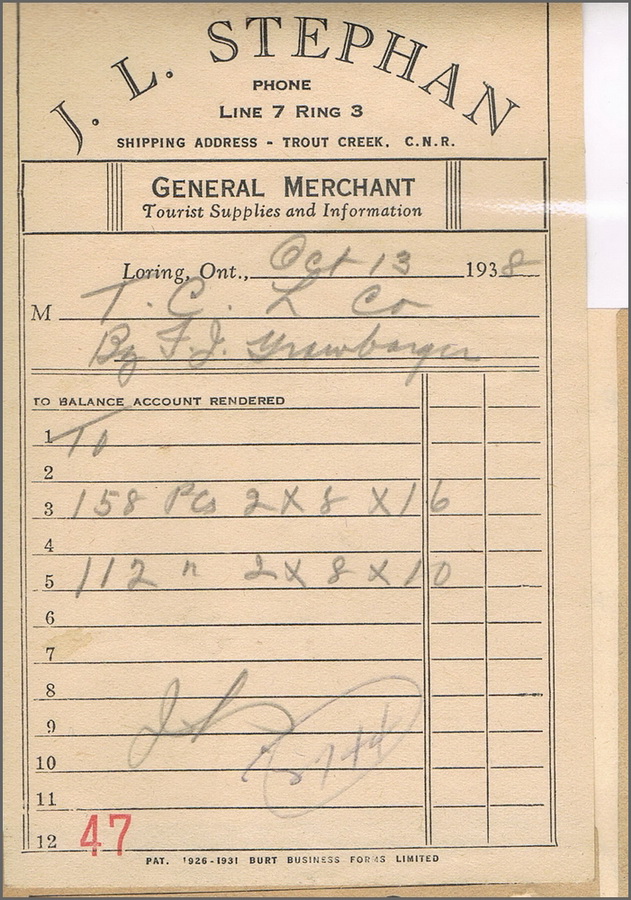 J. L. STEPHAN
PHONE
LINE 7 RING 3
SHIPPING ADDRESS - TROUT CREEK, C.N.R.
GENERAL MERCHANT
Tourist Supplies and Information
Loring, Ont., Oct 13 1938
M T. C. L Co
By F. J.
TO BALANCE ACCOUNT RENDERED
1 To
2
3 158 Pcs 2 X 8 X 16
4
5 112 " 2 X 8 X 10
6
7
8
9
10
11
12 47
PAT. 1926-1931 BURT BUSINESS FORMS LIMITED